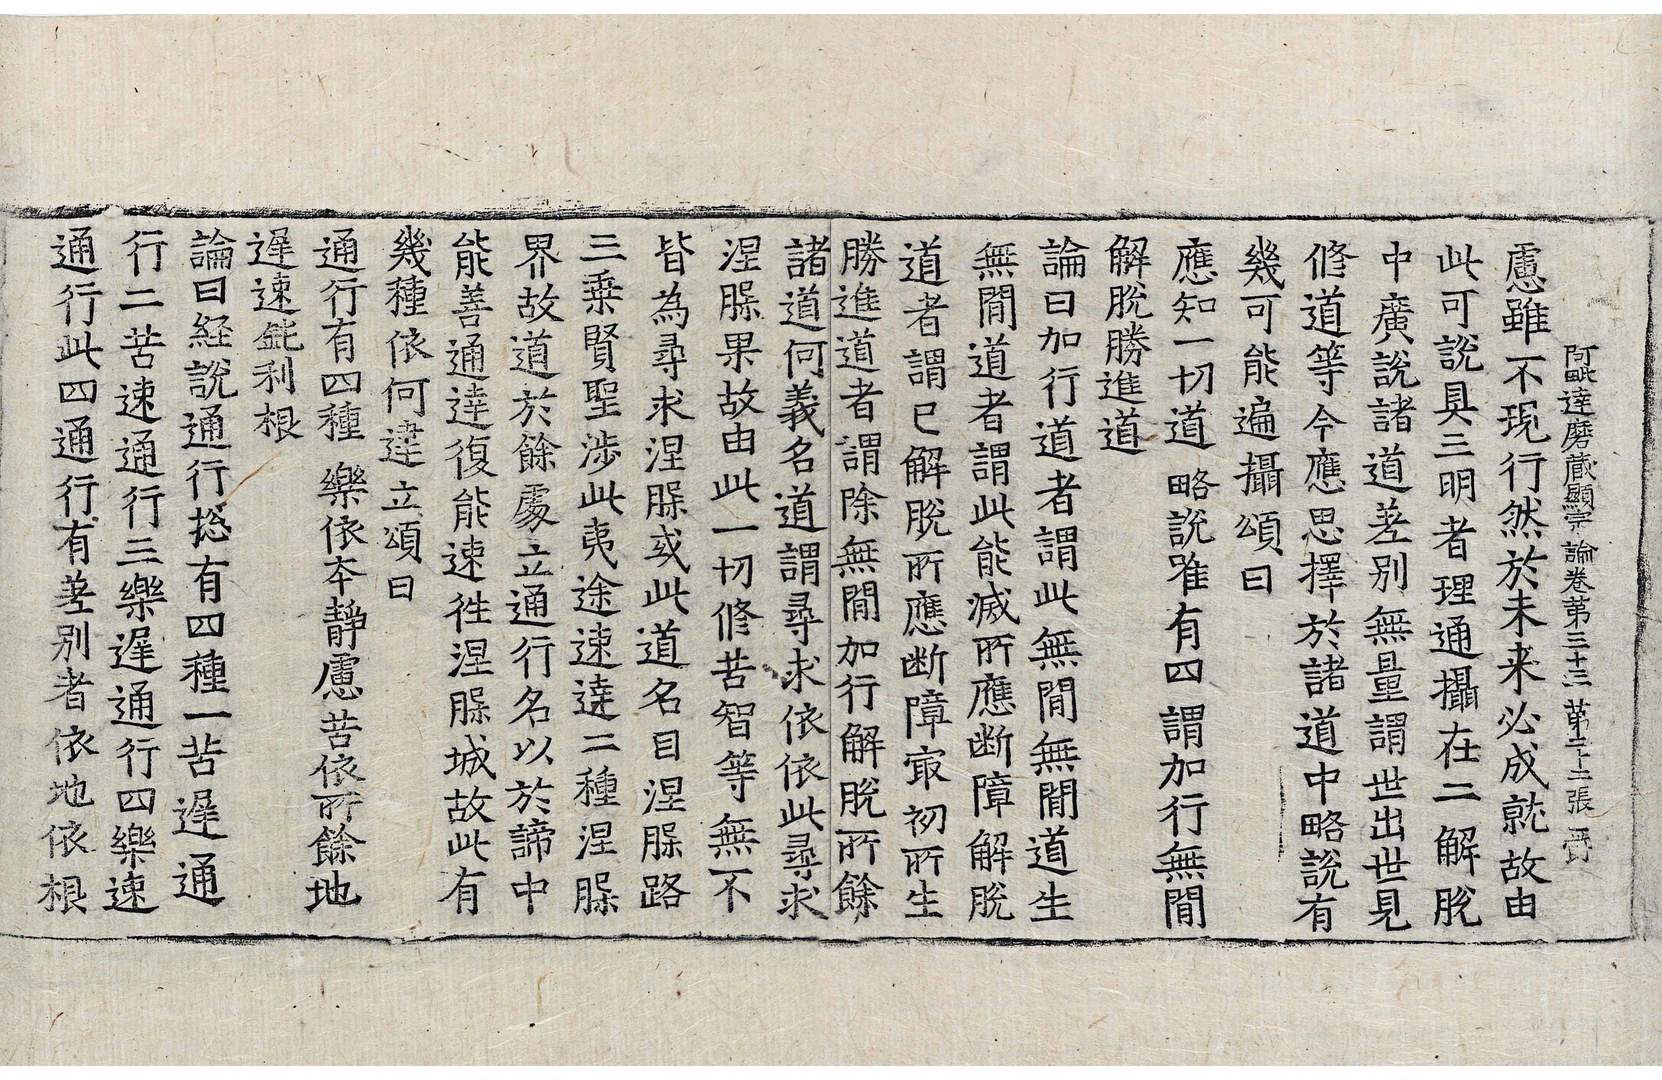 阿毗達磨藏顯宗論卷第三十三 第二十二張
慮雖不現行然於未来必成就故由
此可說具三明者理通攝在二解脫
中廣說諸道差別無量謂世出世見
修道等今應思擇於諸道中略說有
幾可能遍攝頌曰
應知一切道 略說唯有四謂加行無閒
解脫勝進道
論曰加行道者謂此無閒無閒道生
無閒道者謂此能滅所應断障解脫
道者謂已解脫所應断障㝡初所生
勝進道者謂除無閒加行解脫所餘
諸道何義名道謂尋求依依此尋求
涅槃果故由此一切修苦智等無不
皆為尋求涅槃或此道名目涅槃路
三乘賢聖涉此夷途速達二種涅槃
界故道於餘處立通行名以於諦中
能善通達復能速徃涅槃城故此有
幾種依何建立頌曰
通行有四種 樂依本靜慮苦依所餘地
遲速鈍利根
論曰経說通行捴有四種一苦遲通
行二苦速通行三樂遲通行四樂速
通行此四通行有差別者依地依根